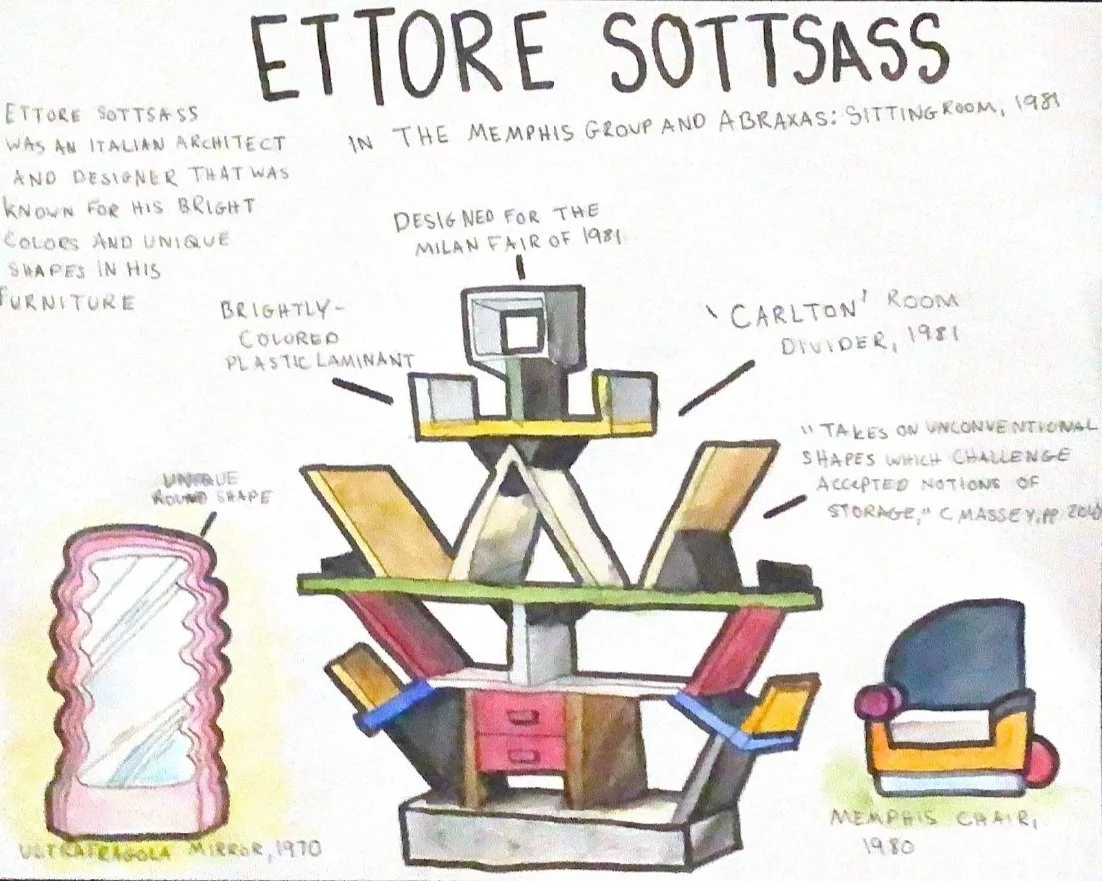 ETTORE SOTTSASS
IN THE MEMPHIS GROUP AND ABRAXAS: SITTING ROOM, 1981
ETTORE SOTTSASS
WAS AN ITALIAN ARCHITECT
AND DESIGNER THAT WAS
KNOWN FOR HIS BRIGHT
COLORS AND UNIQUE
SHAPES IN HIS
FURNITURE
DESIGNED FOR THE
MILAN FAIR OF 1981
BRIGHTLY-
COLORED
PLASTIC LAMINANT
'CARLTON' ROOM
DIVIDER, 1981
"TAKES ON UNCONVENTIONAL
SHAPES WHICH CHALLENGE
ACCEPTED NOTIONS OF
STORAGE," C MASSEY, PP
UNIQUE
ROUND SHAPE
ULTRAFRAGOLA MIRROR, 1970
MEMPHIS CHAIR,
1980